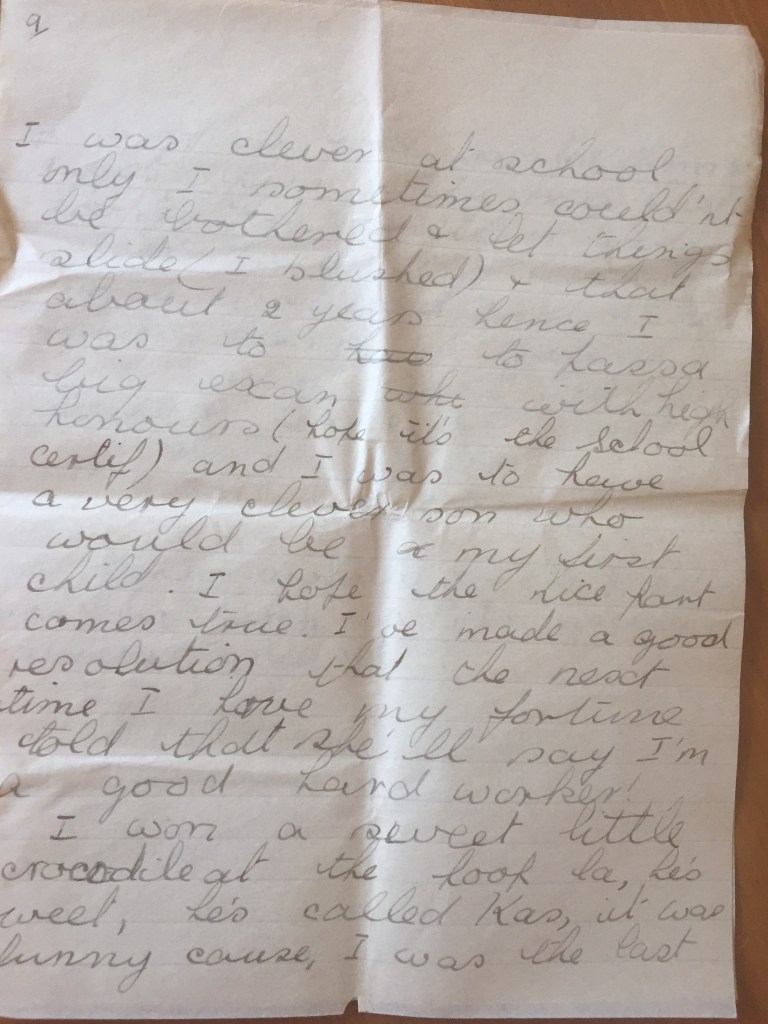 9
I was clever at school
only I sometimes could'nt
be bothered & let things
slide (I blushed) & that
about 2 years hence I
was to to passa
big exan with high
honours (hope it's the School
certif) and I was to have
a very clever son who
would be my first
child. I hope the nice part
comes true. I've made a good
resolution that the next
time I have my fortune
told that she'll say I'm
a good hard worker!
I won a sweet little
crocodile at the hoop la, he's
weet, he's called Kas, it was
funny cause, I was the last